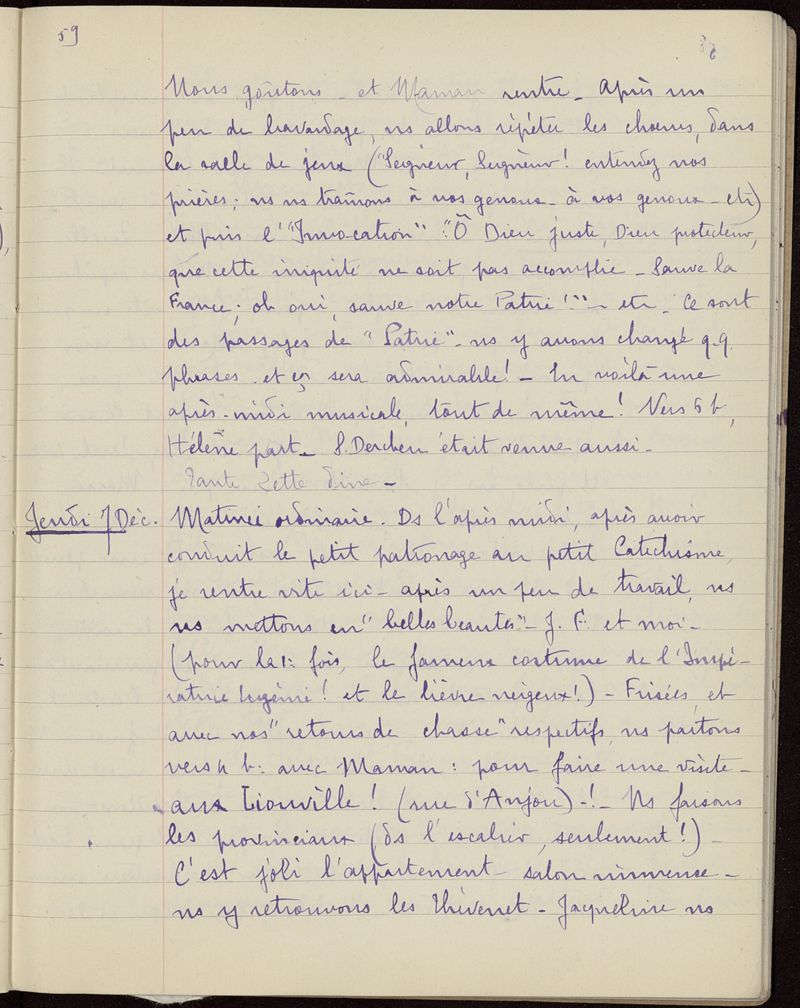 59
Nous goûtons - et Maman rentre - Après un
peu de bavardage, ns allons répéter les chœurs, dans
la salle de jeux ("Seigneur, Seigneur! entendez nos
prières; ns ns traînons à vos genoux - à vos genoux - etc)
et puis l'"Invocation" "Ô Dieu juste, Dieu protecteur,
que cette iniquité ne soit pas accomplie - Sauve la
France; oh oui, sauve notre Patrie!" - etc - Ce sont
des passages de "Patrie" - ns y avons changé q.q.
phrases - et ça sera admirable! - En voilà une
après-midi musicale, tout de même! Vers 6 h,
Hélène part - S. Dercheu était venue aussi -
Tante Zette dîne -
Jeudi 7 Déc. Matinée ordinaire. Ds l'après midi, après avoir
conduit le petit patronage au petit Catéchisme,
je rentre vite ici - après un peu de travail, ns
ns mettons en "belles beautés" - J. F. et moi -
(pour la 1: fois, le fameux costume de l'Impé-
ratrice Eugénie! et le lièvre neigeux!) - Frisées, et
avec nos "retours de chasse" respectifs, ns partons
vers 4 h: avec Maman: pour faire une visite -
aux Liouville! (rue d'Anjou) -! - Ns faisons
les provinciaux (ds l'escalier, seulement!) -
C'est joli l'appartement - salon immense -
ns y retrouvons les Thévenet - Jacqueline ns